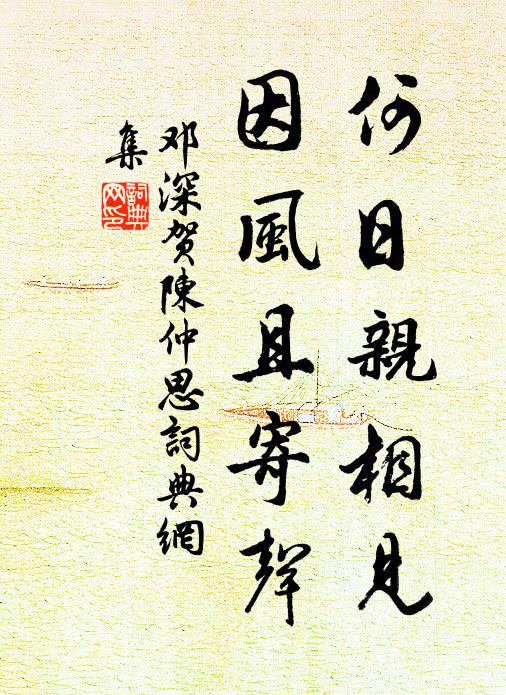 何日親相見
因風且寄聲
邓深贺陳仲思詞典網
集
詞典
网印